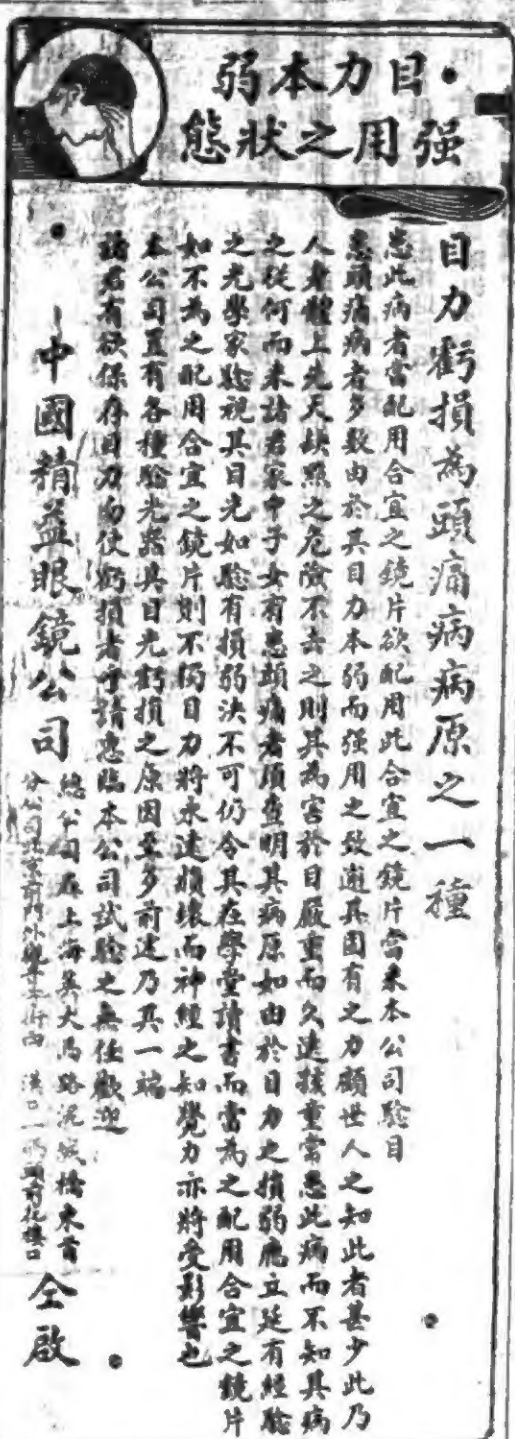 目力本弱
强用之狀態
目力虧損為頭痛病病原之一種
患此病者當配用合宜之鏡片欲配用此合宜之鏡片當来本公司驗目
患頭痛病者多数由於其目力本弱而强用之致逾其固有之力顧世人之知此者甚少此乃
人身體上先天缺點之危險不去之則其為害於目厰重而久遠孩童常患此病而不知其病
之從何而来諸君家中子女有患頭痛者須查明其病原如由於目力之損弱應立廷有經驗
之光學家驗視其目光如驗有損弱決不可仍令其在學堂讀書而當為之配用合宜之鏡片
如不為之配用合宜之鏡片則不獨目力將永遠損壞而神經之知覺力亦將受影響也
本公司置有各種驗光器具目光虧損之原因至多前述乃其一端
諸君有欲保存目力勿使虧損者乎請惠臨本公司試驗之無任歡迎
中國精益眼鏡公司
總公司在上海英大馬路泥城橋東首
分公司北京前門外觀音寺街西 漢口一碼頭前花樓口
仝啟